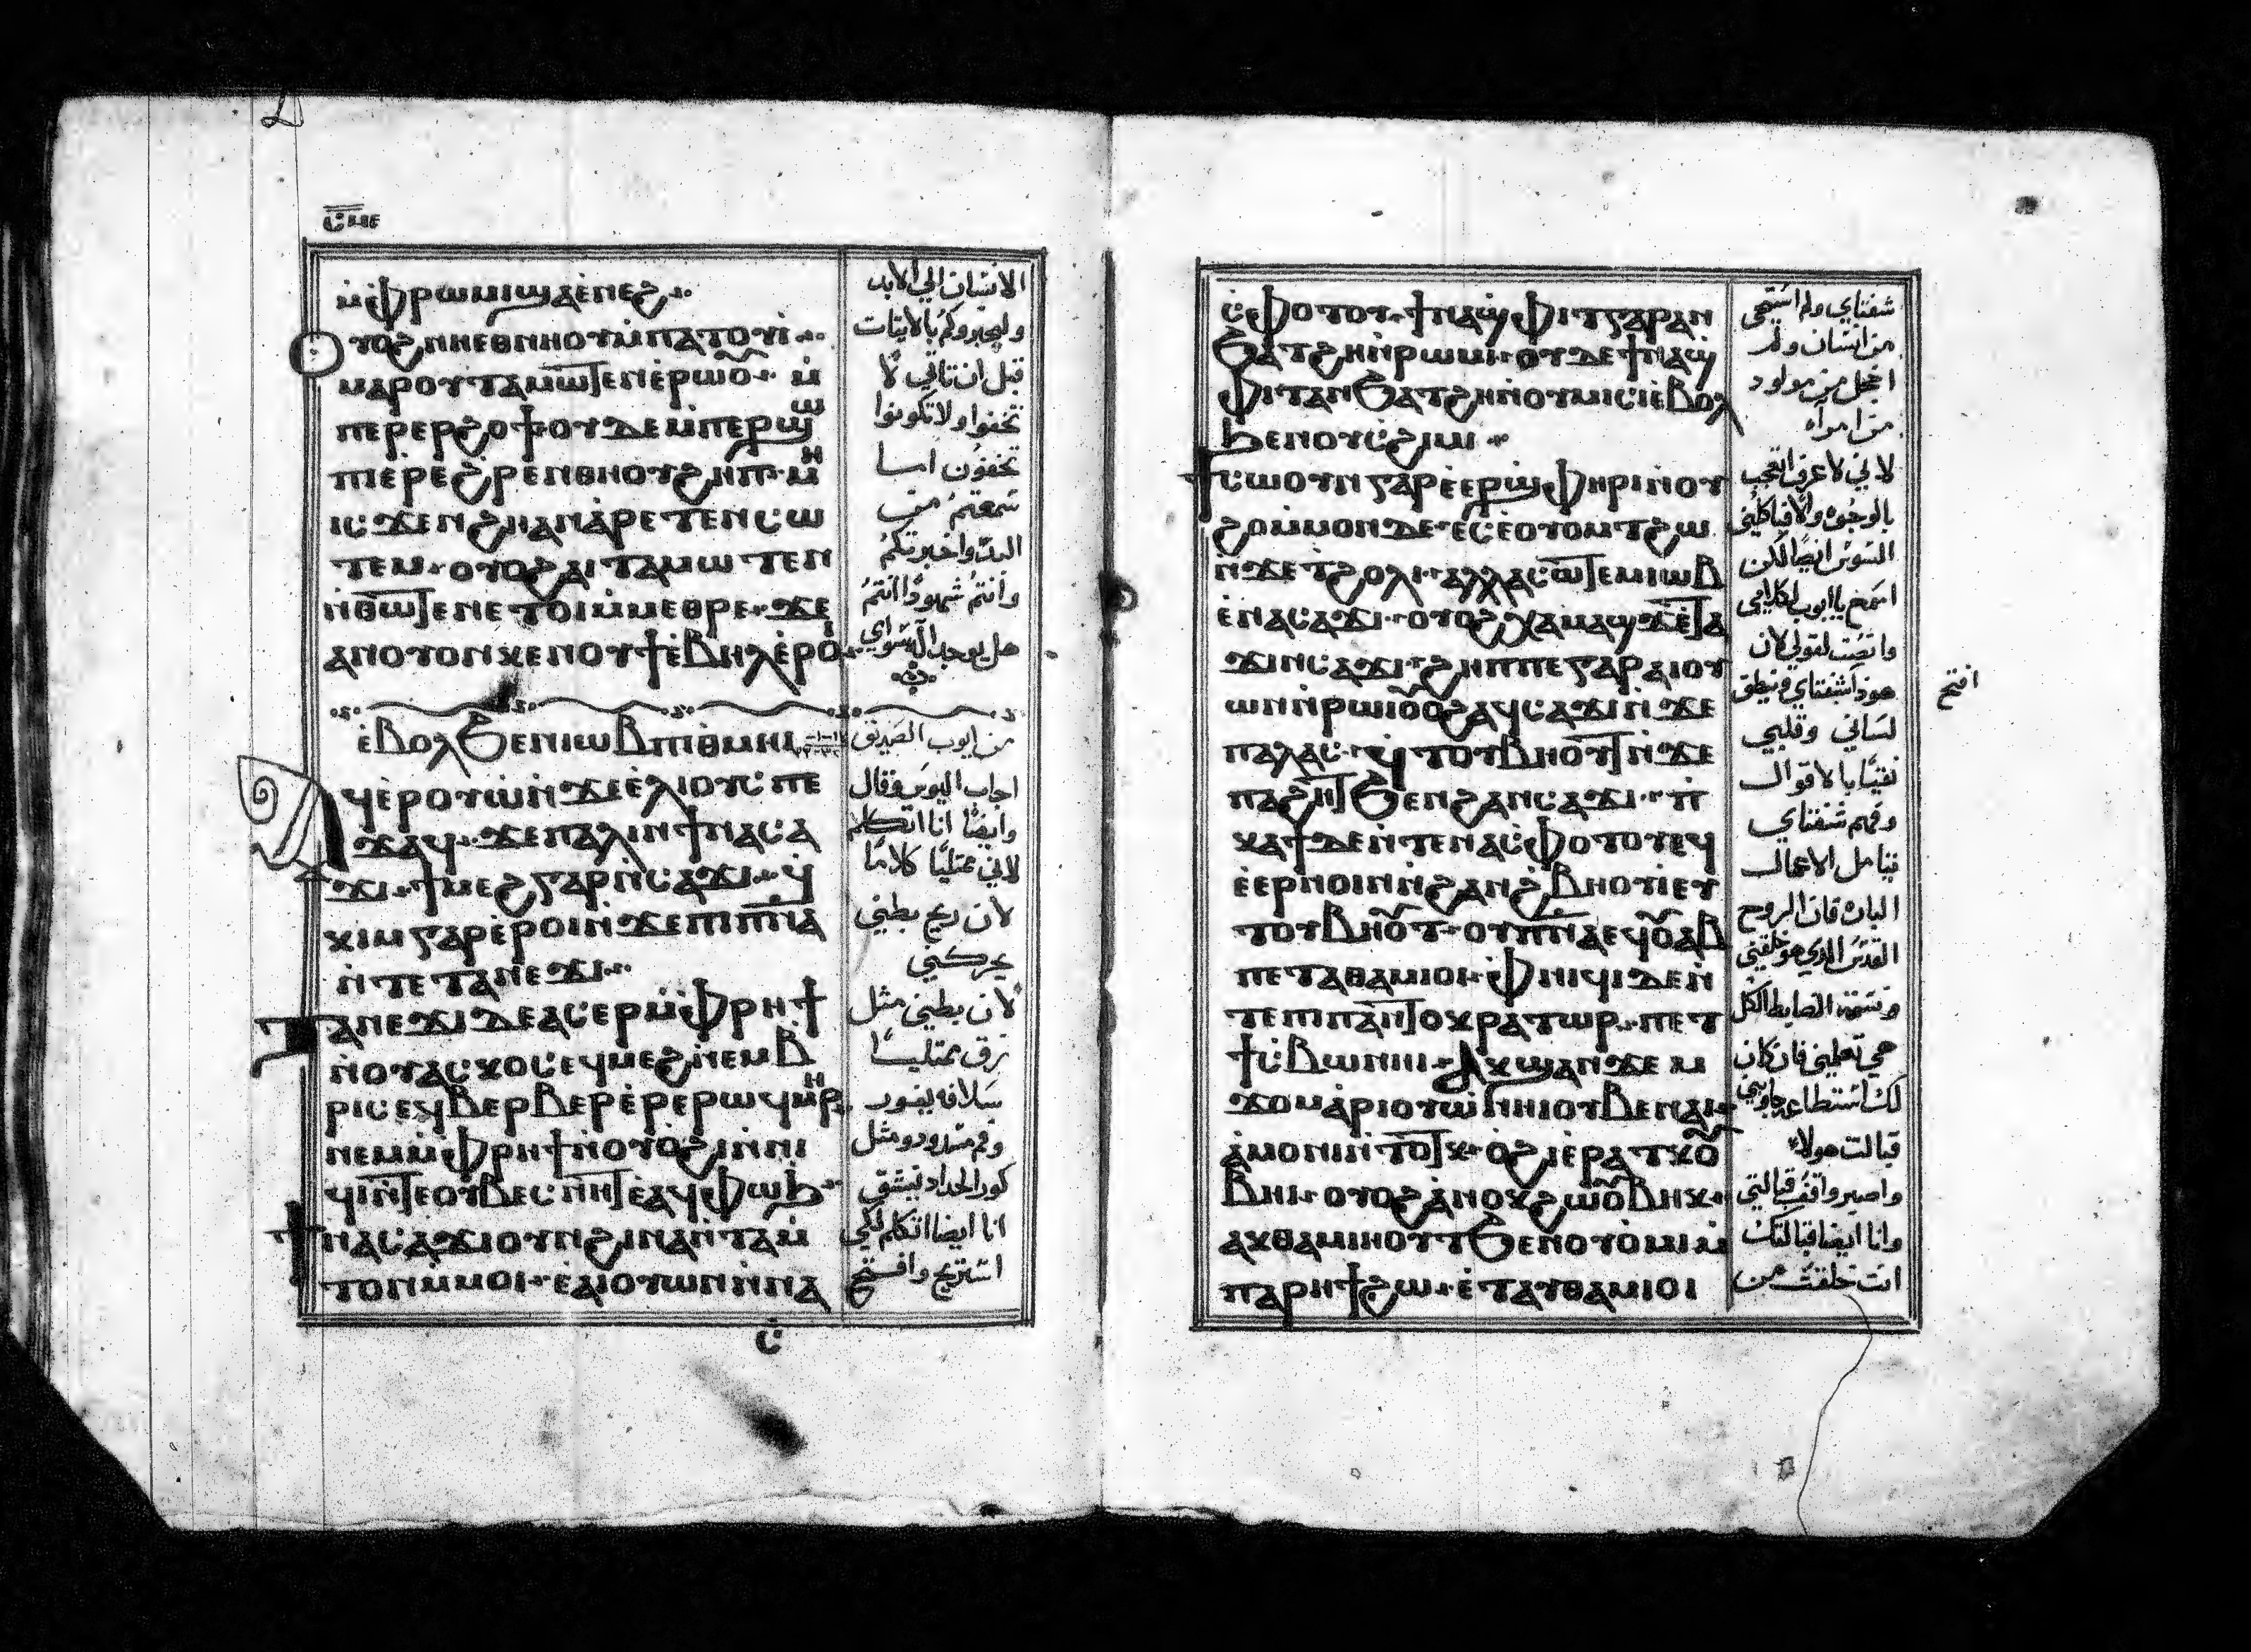 ⲥ̅ⲙⲉ
ⲙ̀ⲫⲣⲱⲙⲓϣⲁⲉ̀ⲛⲉϩ
ⲟⲩⲟϩⲛⲏⲉⲑⲛⲏⲟⲩⲙ̀ⲡⲁⲧⲟⲩⲓ̀
ⲙⲁⲣⲟⲩⲧⲁⲙⲱⲧⲉⲛⲉ̀ⲣⲱⲟⲩ ⲙ̀
ⲡⲉⲣⲉⲣϩⲟϯⲟⲩⲇⲉⲙ̀ⲡⲉⲣϣⲱ
ⲡⲓⲉ̀ⲣⲉϩⲣⲉⲛⲑⲏⲛⲟⲩϩⲏⲡ ⲙⲏ
ⲓⲥϫⲉⲛϩⲏⲁⲛⲁ̀ⲣⲉⲧⲉⲛⲥⲱ
ⲧⲉⲙ ⲟⲩⲟϩⲁⲓⲧⲁⲙⲱⲧⲉⲛ
ⲛ̀ⲑⲱⲧⲉⲛⲉⲧⲟⲓⲙ̀ⲙⲉⲑⲣⲉ ϫⲉ
ⲁⲛⲟⲩⲟⲛⲕⲉⲛⲟⲩϯⲉ̀ⲃⲏⲗⲉ̀ⲣⲟⲓ
ⲉ̀ⲃⲟⲗϧⲉⲛⲓⲱⲃⲡⲓⲑⲙⲏⲓ
ⲁϥⲉ̀ⲣⲟⲩⲱ̀ⲛ̀ϫⲉⲉ̀ⲗⲓⲟⲩⲥⲡⲉ
ϫⲁϥ ϫⲉⲡⲁⲗⲓⲛϯⲛⲁⲥⲁ
ϫⲓ ϯⲙⲉϩⲅⲁⲣⲛ̀ⲥⲁϫⲓ ϥ̀
ⲕⲓⲙⲅⲁⲣⲉ̀ⲣⲟⲓⲛ̀ϫⲉⲡⲓⲡⲛⲁ
ⲛ̀ⲧⲉⲧⲁⲛⲉϫⲓ
ⲧⲁⲛⲉϫⲓⲇⲉⲁⲥⲉⲣⲙ̀ⲫⲣⲏϯ
ⲛ̀ⲟⲩⲁⲥⲕⲟⲥⲉϥⲙⲉϩⲛ̀ⲉⲙⲃ
ⲣⲓⲥⲉϥⲃⲉⲣⲃⲉⲣⲉ̀ⲣⲉⲣⲱϥⲙⲏⲣ
ⲛⲉⲙⲙ̀ⲫⲣⲏϯⲛ̀ⲟⲩⲟϩⲓⲛⲛⲓ
ϥⲓⲛ̀ⲧⲉⲟⲩⲃⲉⲥⲛⲏⲧⲉⲁϥⲫⲱϧ
ϯⲛⲁⲥⲁϫⲓⲟⲩⲛϩⲓⲛⲁⲛ̀ⲧⲁⲙ̀
ⲧⲟⲛⲙ̀ⲙⲟⲓ ⲉ̀ⲁⲓⲟⲩⲱⲛⲛ̀ⲛⲁ
ⲥ̀
الانسان الي الابد
وليخبروكم بالايتات
قبل ان تاتي لا
تخفوا ولا تكونوا
تخفون اما
سمعتم من
البدء واخبرتكم
وانتم شهودًا انتم
هل يوجد اله سواي
من ايوب الصديق
اجاب اليوس فقال
وايضًا انا اتكلم
لاني ممتليًا كلامًا
لان ريح بطني
يحركني
لان بطني مثل
زق ممتليًا
سلافه يفور
وفم مشدود ومثل
كور الحداد تنشق
انا ايضا اتكلم لكي
استريح وافتتح
ⲥ̀ⲫⲟⲧⲟⲩ ϯⲛⲁϣϥⲓⲧⲅⲁⲣⲁⲛ
ϧⲁⲧϩⲏⲛ̀ⲣⲱⲙⲓ ⲟⲩⲇⲉϯⲛⲁϣ
ϥⲓⲧⲁⲛϧⲁⲧϩⲏⲛ̀ⲟⲩⲙⲓⲥⲓⲉ̀ⲃⲟⲗ
ϧⲉⲛⲟⲩⲥ̀ϩⲓⲙⲓ
ϯⲥⲱⲟⲩⲛⲅⲁⲣⲉ̀ⲉⲣϣⲫⲏⲣⲓⲛ̀ⲟⲩ
ϩⲟⲙ̀ⲙⲟⲛⲇⲉ ⲉⲥⲉ̀ⲟⲩⲟⲙⲧϩⲱ
ⲛ̀ϫⲉⲧϩⲟⲗⲓ ⲁⲗⲗⲁⲥⲱⲧⲉⲙⲓⲱⲃ
ⲉ̀ⲛⲁⲥⲁϫⲓ ⲟⲩⲟϩⲭⲁⲙⲁϣϫⲉ̀ⲧⲁ
ϫⲓⲛⲥⲁϫⲓ ϩⲏⲡⲡⲉⲅⲁⲣⲁⲓⲟⲩ
ⲱⲛⲛ̀ⲣⲱⲓⲟⲩⲟϩⲁϥⲥⲁϫⲓⲛ̀ϫⲉ
ⲡⲁⲗⲁⲥ ϥ̀ⲧⲟⲩⲃⲏⲟⲩⲧⲛ̀ϫⲉ
ⲡⲁϩⲏⲧϧⲉⲛϩⲁⲛⲥⲁϫⲓ ⲡ̀
ⲕⲁϯⲇⲉⲛ̀ⲧⲉⲛⲁⲥ̀ⲫⲟⲧⲟⲩⲉϥ
ⲉ̀ⲉⲣⲛⲟⲓⲛ̀ⲛ̀ϩⲁⲛϩⲃⲏⲟⲩⲓ̀ⲉⲩ
ⲧⲟⲩⲃⲏⲟⲩⲧ ⲟⲩⲡⲛⲁⲉϥⲟⲩⲁⲃ
ⲡⲉⲧⲁⲑⲁⲙⲓⲟⲓ ⲫⲛⲓϥⲓⲇⲉⲛ̀
ⲧⲉⲡⲓⲡⲁⲛⲧⲟⲕⲣⲁⲧⲱⲣ ⲡⲉⲧ
ϯⲥ̀ⲃⲱⲛⲏⲓ ⲁⲕϣⲁⲛϫⲉⲙ
ϫⲟⲙⲁ̀ⲣⲓⲟⲩⲱ̀ⲛⲏⲓⲟⲩⲃⲉⲛⲁⲓ
ⲁ̀ⲙⲟⲛⲓⲛ̀ⲧⲟⲧⲕ ⲟ̀ϩⲓⲉ̀ⲣⲁⲧⲕⲟⲩ
ⲃⲏⲓ ⲟⲩⲟϩⲁ̀ⲛⲟⲕϩⲱⲟⲩⲃⲏⲕ
ⲁⲕⲑⲁⲙⲓⲏⲟⲩⲧϧⲉⲛⲟⲩⲟ̀ⲙⲓⲙ̀
ⲡⲁⲣⲏϯϩⲱ ⲉ̀ⲧⲁⲩⲑⲁⲙⲓⲟⲓ
شفتاي ولم استحي
من انسان ولا
اخجل من مولود
من امرأه
لاني لا اعرف اتعجب
بالوجوه والا فياكلني
السوس ايضًا لكن
اسمع يا ايوب لكلامي
وانصت لقولي لان
هوذا شفتاي ونطق
افتح
لساني وقلبي
نقيًا بالاقوال
وفهم شفتاي
تتامل الاعمال
الباره فان الروح
القدس الذي هو خلقني
ونسمة الضابط الكل
هي تعلمني فان كان
لك استطاعه جاوبني
قبالت هولاء
واصبر واقف قبالتي
وانا ايضا قبالتك
انت خلقت من